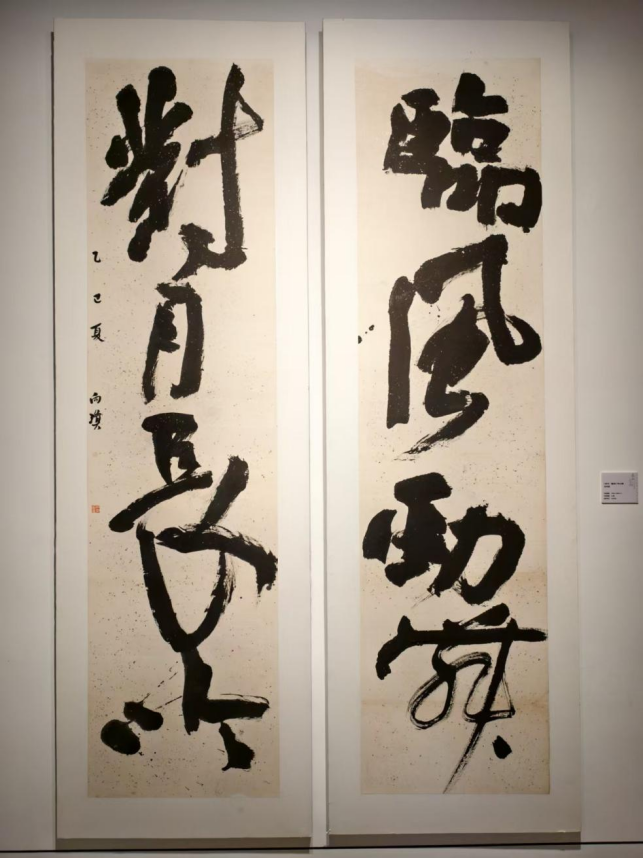 臨風勁舞
對月長吟
乙巳夏 向